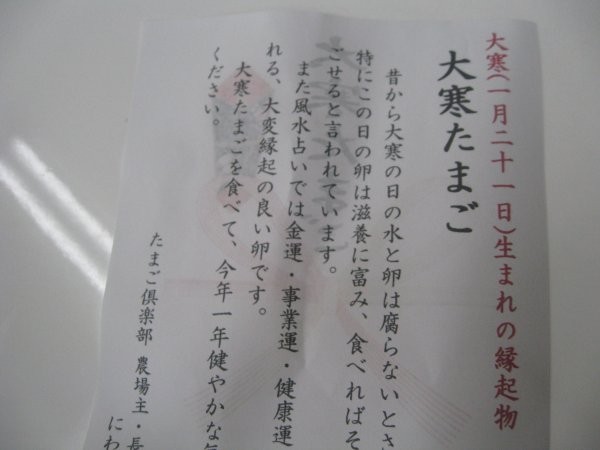 大寒(一月二十一日)生まれの縁起物
大寒たまご
昔から大寒の日の水と卵は腐らないとさ
特にこの日の卵は滋養に富み、食べればそ
ごせると言われています。
また風水占いでは金運・事業運・健康運
れる、大変縁起の良い卵です。
大寒たまごを食べて、今年一年健やかな
ください。
たまご倶楽部 農場主・長
にわ